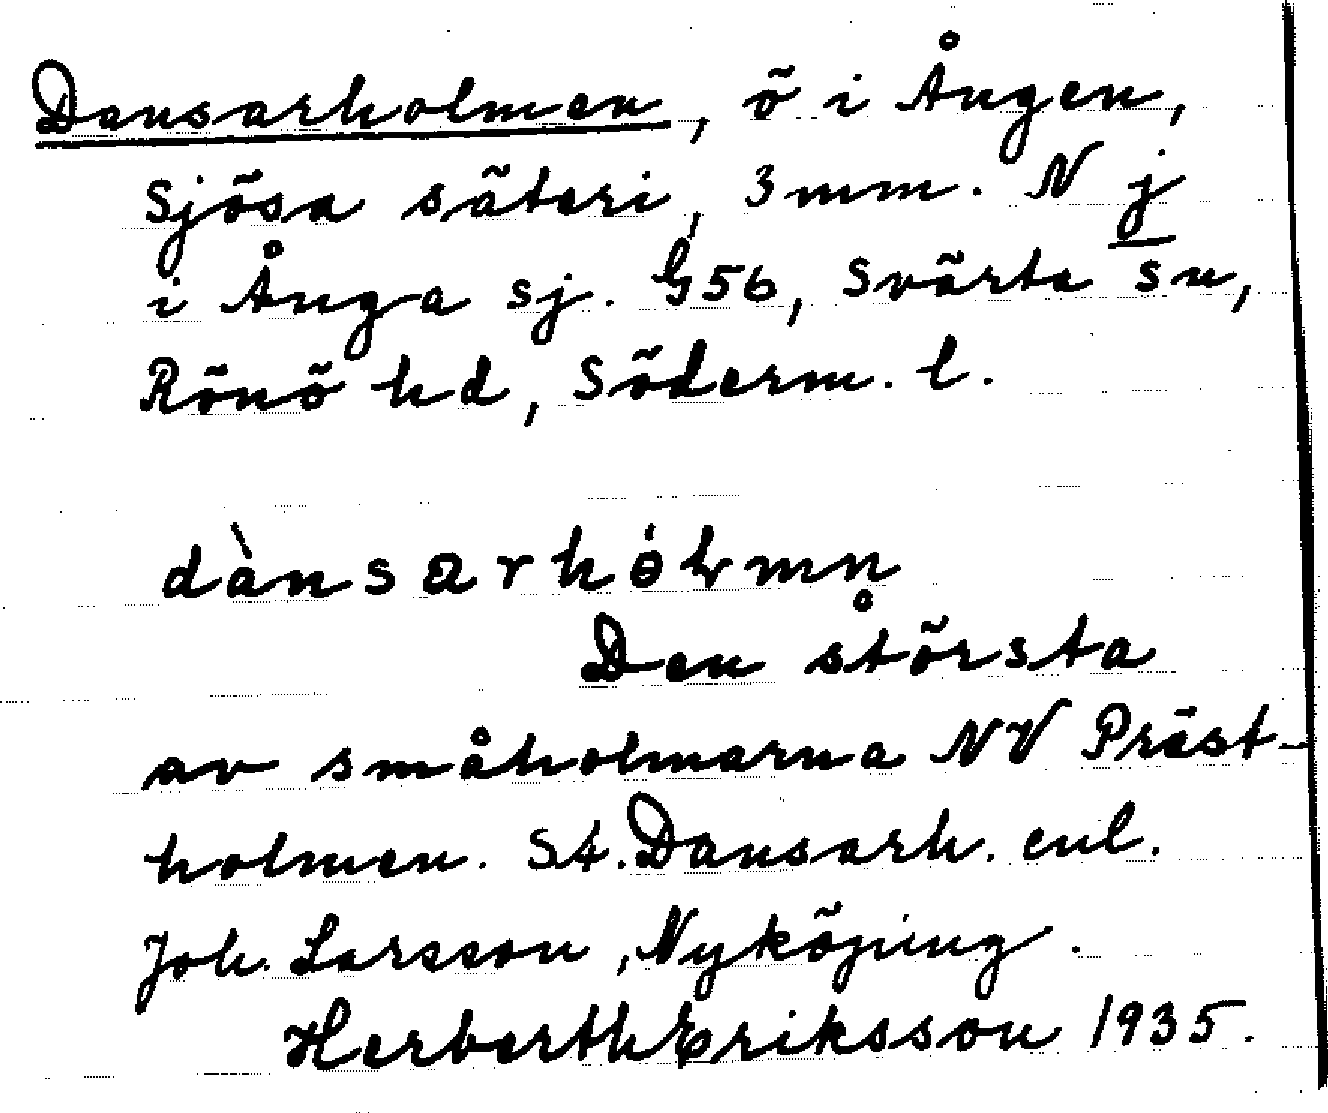 Dansarholmen, ö i Ången,
Sjösa säteri, 3 mm. N j
i Ånga sj. G56, Svärta sn,
Rönö hd, Söderm. l.
dànsarhólmn̥
Den största
av småholmarna NV Präst-
holmen. St. Dansarh. enl.
Joh. Larsson, Nyköping.
Herberth Eriksson 1935.